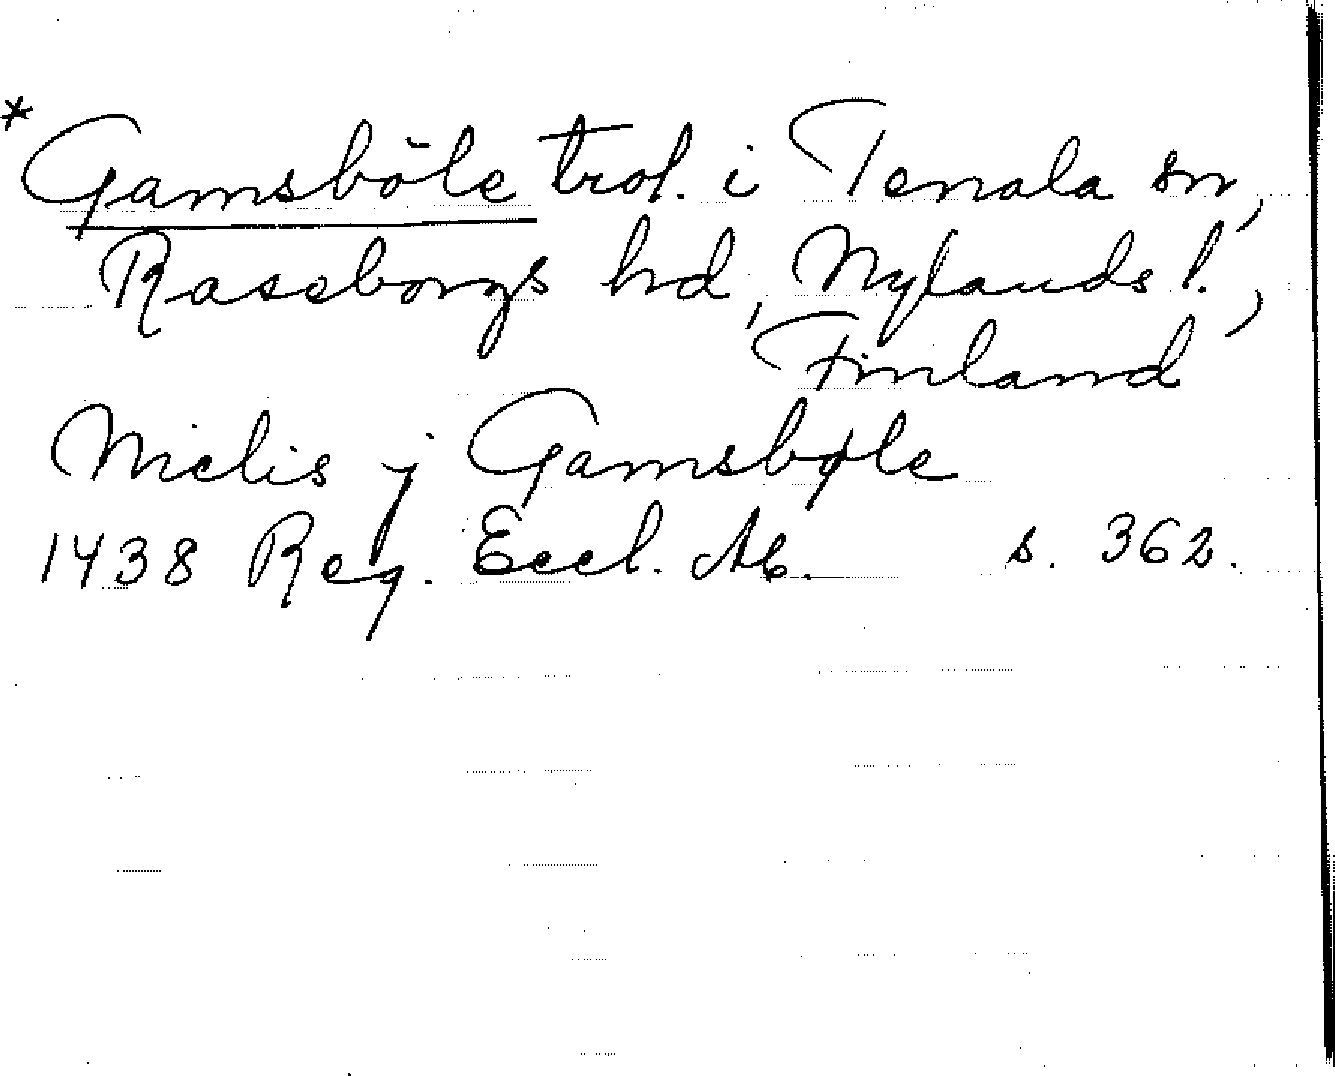 * Gamsböle trol. i Tenala sn,
Raseborgs hd, Nylands l.,
Finland
Nielis j Gamsbøle
1438 Reg. Eccl. Ab. s. 362.